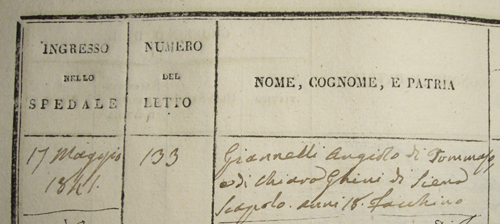 INGRESSO
NELLO
SPEDALE
NUMERO
DEL
LETTO
NOME, COGNOME, E PATRIA
17 Maggio
1841.
133
Giannelli Angiolo di Tommaso
e di Chiara Ghini di Siena
Scapolo. anni 18. facchino